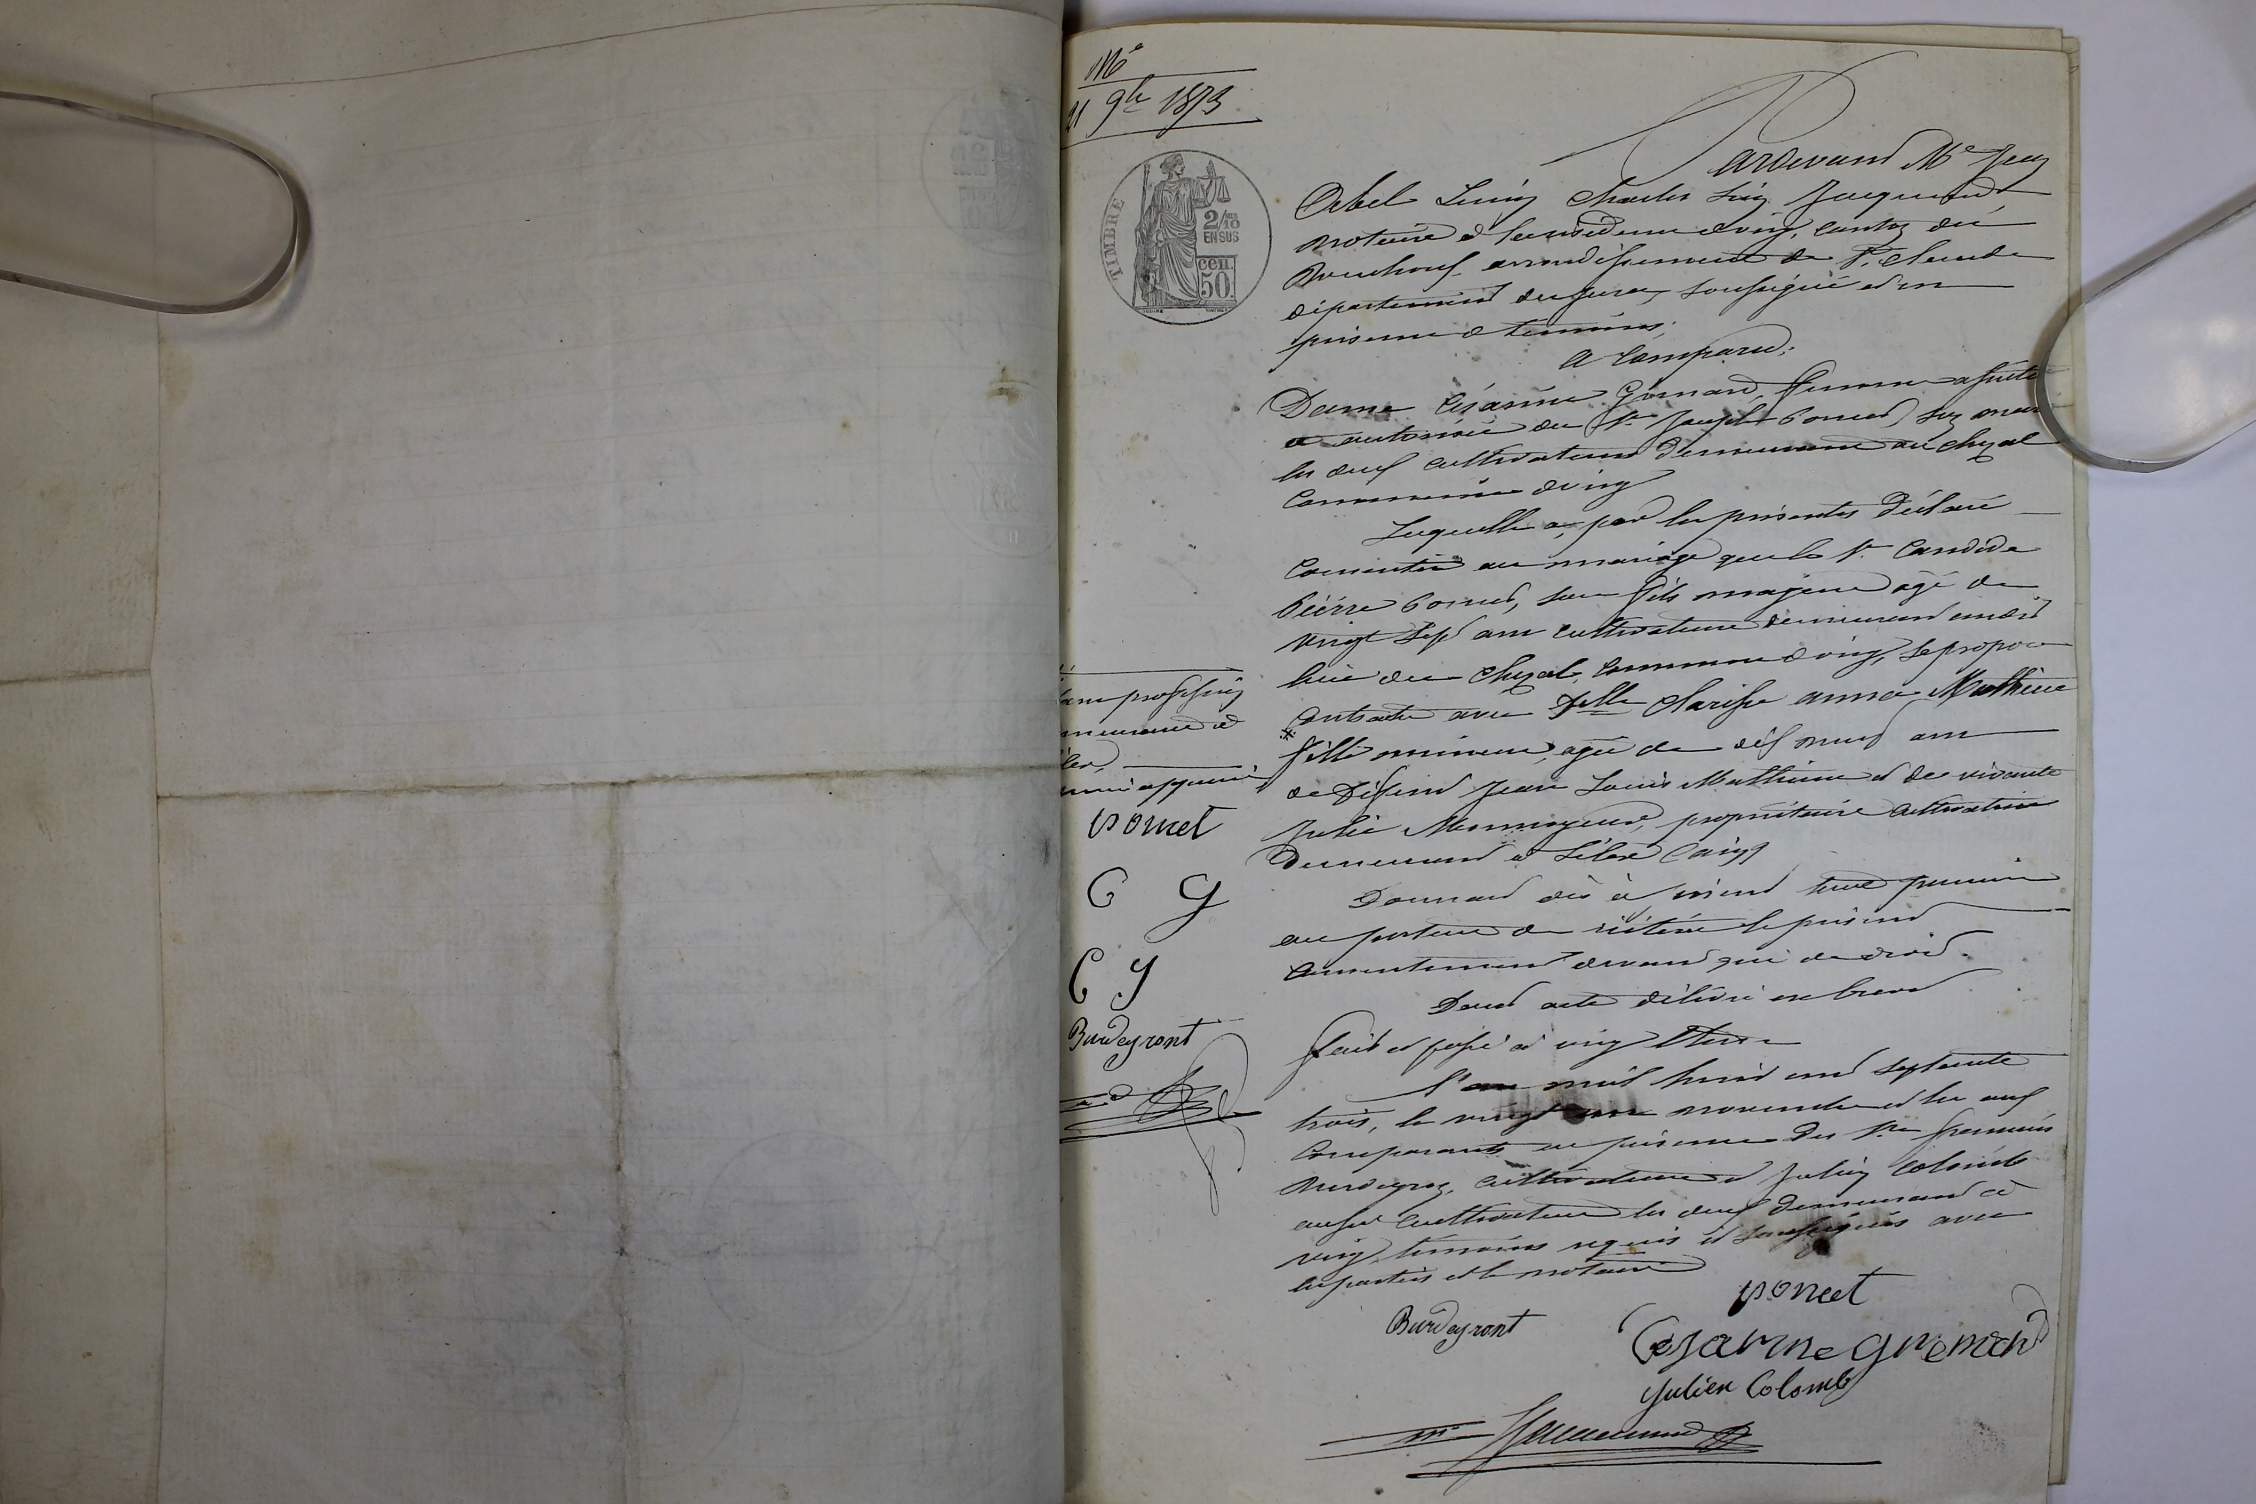 21 9bre 1873
TIMBRE
2/10 EN SUS
cen. 50.
Pardevant Me Jean
Abel Léon Charles Jacquemin
notaire à la résidence de Viry, canton des
Bouchoux arrondissement de St Claude
département du Jura, soussigné et en
présence de témoins;
A Comparu:
Dame Césarine Grenard, femme assistée
et autorisée du Sr Joseph Poncet, son mari
les deux cultivateurs demeurant au
commune de Viry
Laquelle a, par les présentes déclaré
Consentir au mariage que le Sr Candide
Pierre Poncet, son fils majeur âgé de
vingt sept ans cultivateur demeurant au dit
lieu du commune de Viry, se propose
contracter avec Delle Clarisse anna Mathieu
fille mineure, âgée de dix neuf ans
de défunt Jean Louis Mathieu et de vivante
Julie propriétaire cultivatrice
Demeurant à
Donnant dès à présent tout pouvoir
au porteur de réitérer le présent
Consentement devant qui de droit.
Dont acte délivré en brevet
fait et passé à Viry Etude
l'an mil huit cent septante
trois, le vingt un novembre et les deux
Comparants en présence des Srs François
Burdeyron, cultivateur et Julien Colomb
aussi cultivateur les deux demeurant à
Viry, témoins requis et soussignés avec
les parties et le notaire
Poncet
Burdeyront
Cesarine Grenard
Julien Colomb
sans profession
demeurant à
Poncet
C G
C J
Burdeyront